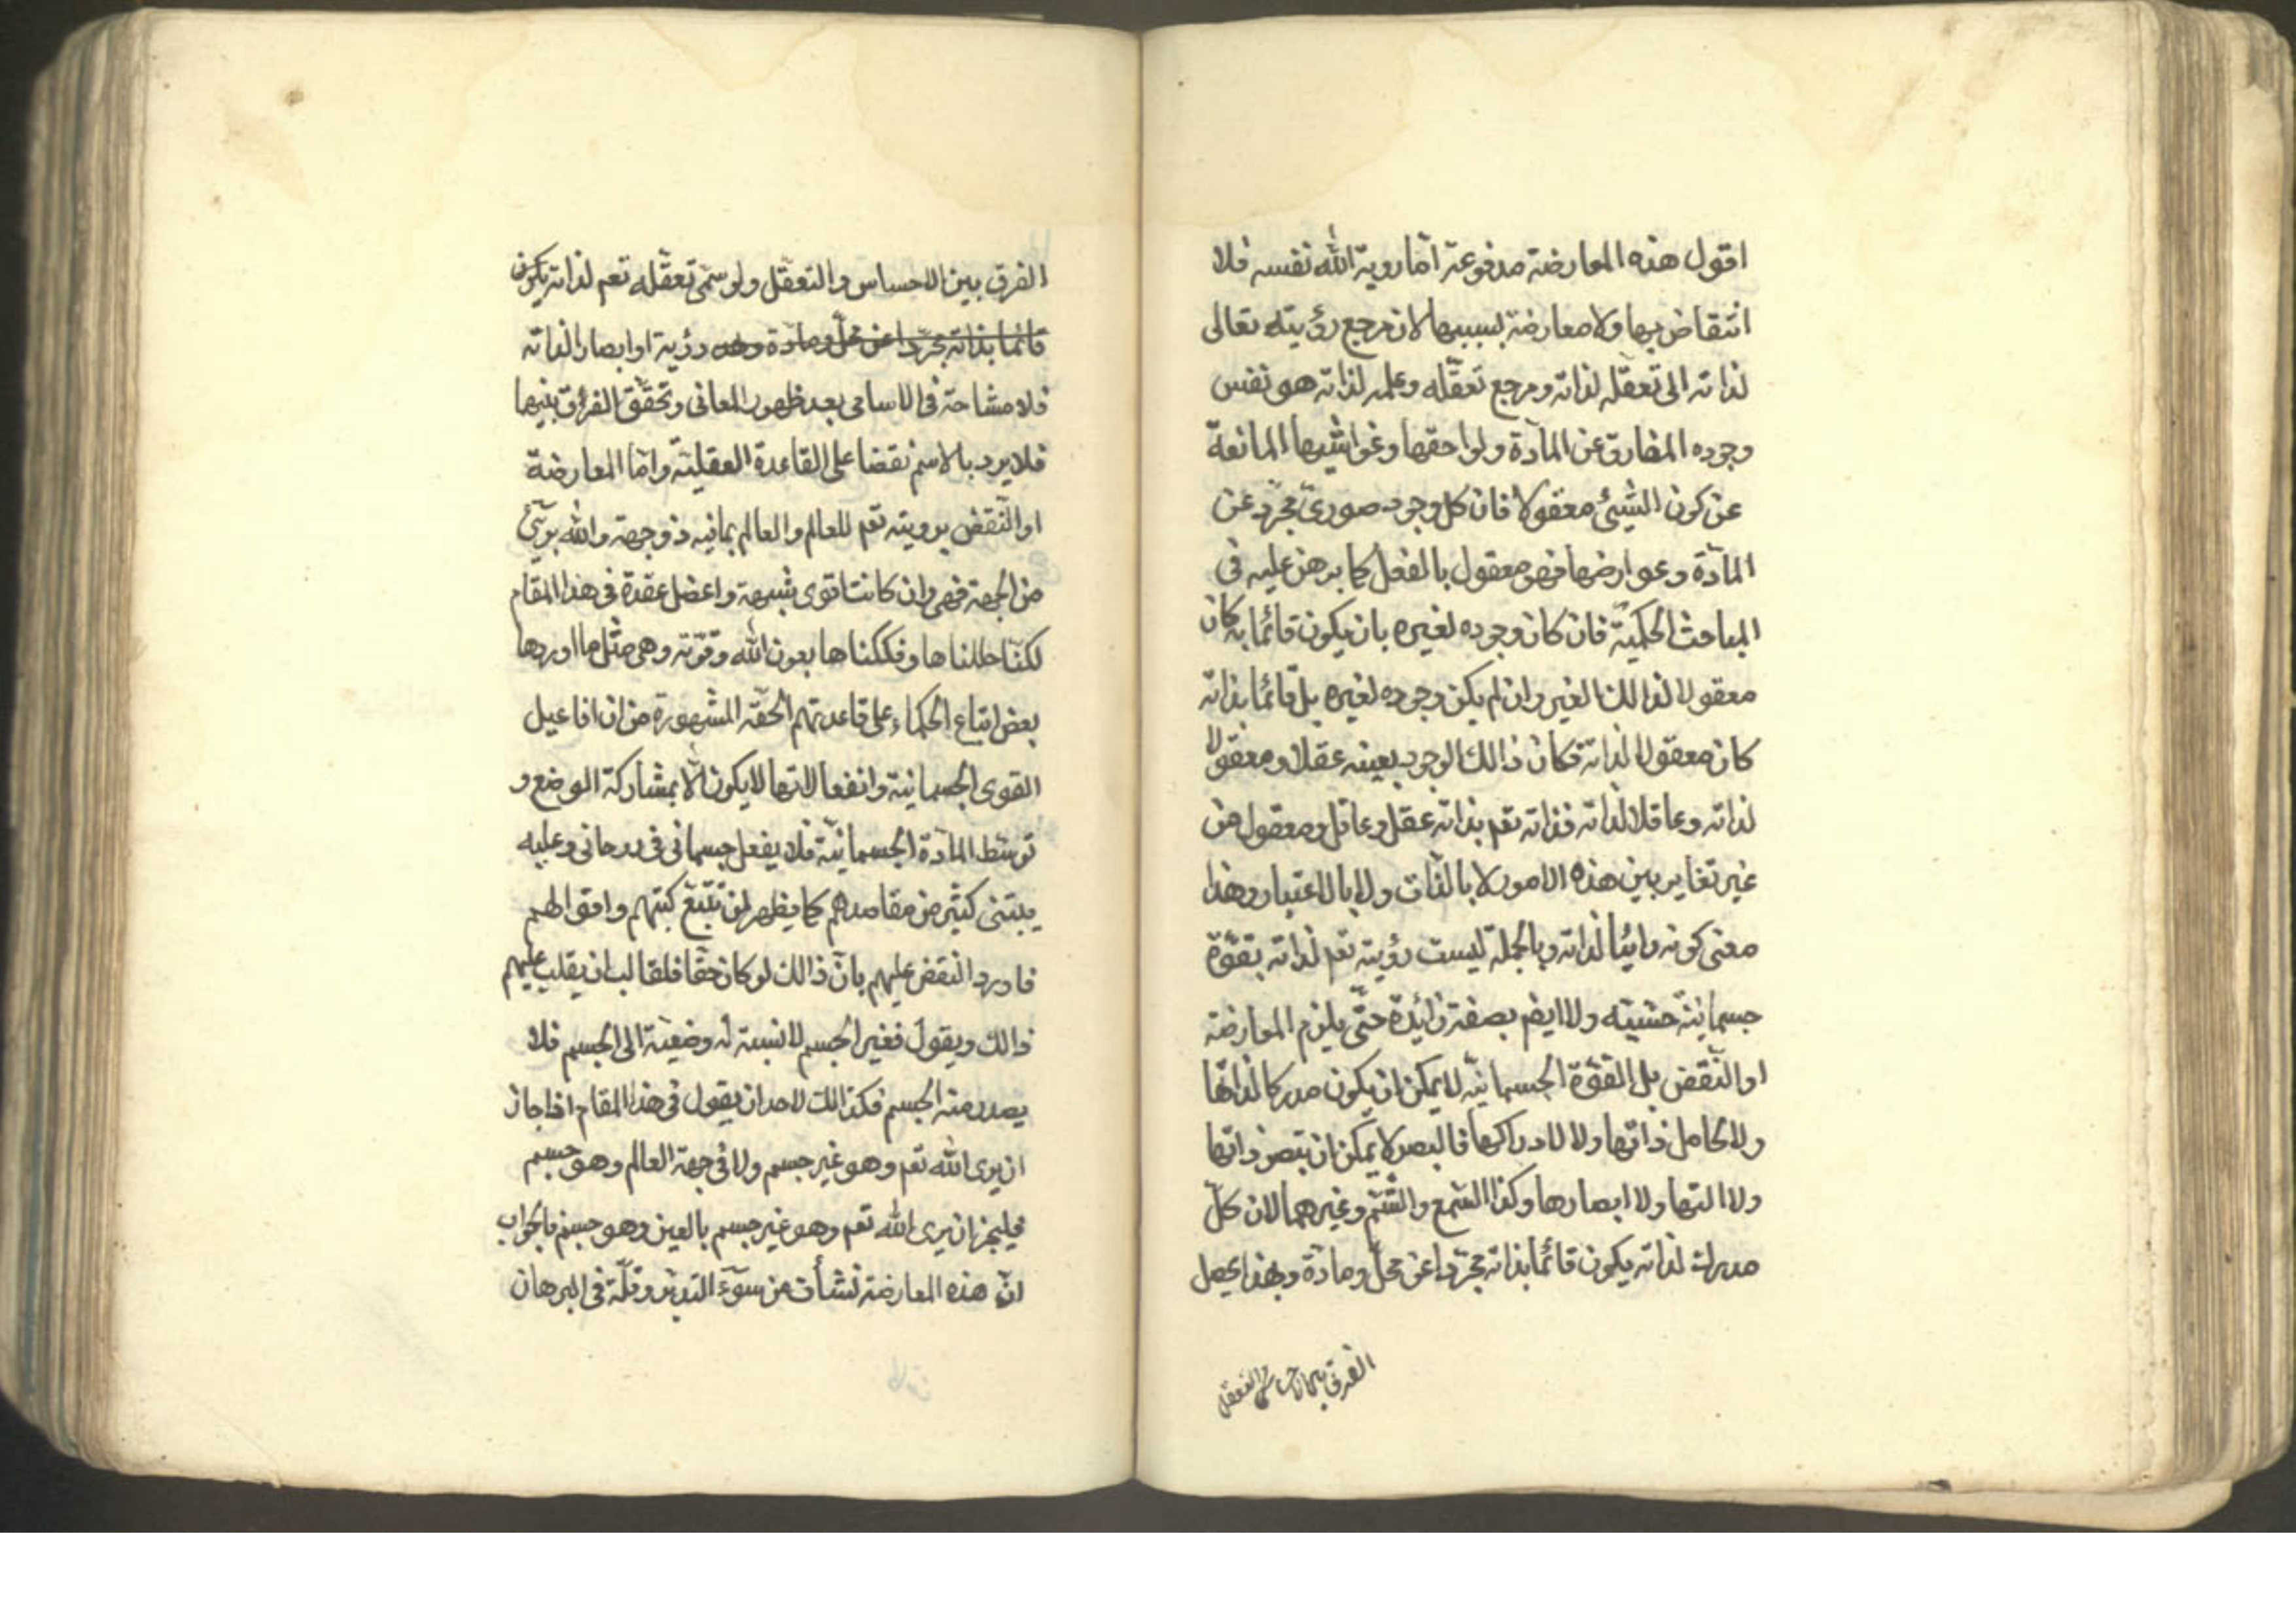 اقول هذه المعارضة مدفوعة امّا روية الله نفسه فلا
انتقاض بها ولا معارضة بسببها لان مرجع رؤيته تعالى
لذاته الى تعقّله لذاته ومرجع تعقّله وعلمه لذاته هو نفس
وجوده المفارق عن المادّة ولواحقها وغواشيها المانعة
عن كون الشيئ معقولا فان كل وجود صوريّ مجرّد عن
المادّة وعوارضها فهو معقول بالفعل كما برهن عليه فى
المباحث الحكميّة فان كان وجوده لغيره بان يكون قائما به كان
معقولا لذالك الغير وان لم يكن وجوده لغيره بل قائما بذاته
كان معقولا لذاته فكان ذالك الوجود بعينه عقلا ومعقولا
لذاته وعاقلا لذاته فذاته تعم بذاته عقل وعاقل ومعقول من
غير تغاير بين هذه الامور لا بالذات ولا بالاعتبار وهذا
معنى كونه رائيا لذاته وبالجملة ليست رؤيته تعم لذاته بقوّة
جسمانيّة حسّيّه ولا ايضم بصفة زائدة حتّى يلزم المعارضة
او النّقض بل القوّة الجسمانيّه لا يمكن ان يكون مدركا لذاتها
ولا لحامل ذاتها ولا لادراكها فالبصر لا يمكن ان تبصر ذاتها
ولا التها ولا ابصارها وكذا السّمع والشّم وغيرهما لان كلّ
مدرك لذاته يكون قائما بذاته مجرّدا عن محلّ ومادّة وبهذا يحصل
الفرق بين الاحساس والتعقل
الفرق بين الاحساس والتعقّل ولو سمّى تعقّله تعم لذاته يكون
قائما بذاته مجرّدا عن محلّ ومادّة وهذه رؤية او ابصارا لذاته
فلا مشاحة فى الاسامى بعد ظهور المعانى وتحقّق الفرق بينهما
فلا يرد بالاسم نقضا على القاعدة العقليّة وامّا المعارضة
او النّقض برويته تعم للعالم والعالم بمافيه ذو جهة والله برئ
من الجهة فهى وان كانت اقوى شبهة واعضل عقدة فى هذا المقام
لكنّا حللناها وفككناها بعون الله وقوّته وهى مثل ما اوردها
بعض اتباع الحكماء على قاعدتهم الحقّه المشهورة من ان افاعيل
القوى الجسمانيّة وانفعالاتها لا يكون الّا بمشاركة الوضع و
توسّط المادّة الجسمانيّة فلا يفعل جسمانى فى روحانى وعليه
يبتنى كثير من مقاصدهم كما يظهر لمن تتبّع كتبهم واقوالهم
فاورد النقض عليهم بانّ ذالك لو كان حقّا فلقالب ان يقلب عليهم
ذالك ويقول فغير الجسم لا نسبة له وضعيّة الى الجسم فلا
يصدر منه الجسم فكذالك لاحد ان يقول فى هذا المقام اذا جاز
ان يرى الله تعم وهو غير جسم ولا فى جهة العالم وهو جسم
فليجز ان يرى الله تعم وهو غير جسم بالعين وهو جسم فالجواب
انّ هذه المعارضة نشأت من سوء التدبّر وقلّة فى البرهان